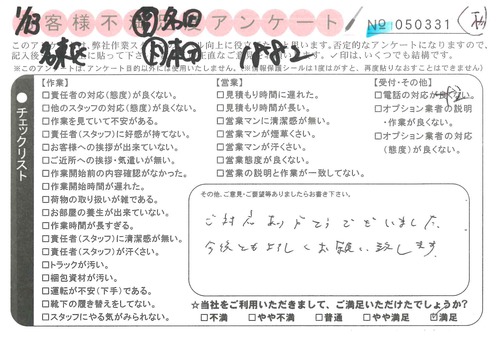 お客様不満足度アンケート
№ 050331
1/13
※このアンケートは、アンケート目的以外には使用いたしません。
チェックリスト
【作業】
□責任者の対応(態度)が良くない。
□他のスタッフの対応(態度)が良くない。
□作業を見ていて不安がある。
□責任者(スタッフ)に好感が持てない。
□お客様への挨拶が出来ていない。
□ご近所への挨拶・気遣いが無い。
□作業開始前の内容確認がなかった。
□作業開始時間が遅れた。
□荷物の取り扱いが雑である。
□お部屋の養生が出来ていない。
□作業時間が長すぎる。
□責任者(スタッフ)に清潔感が無い。
□責任者(スタッフ)が汗くさい。
□トラックが汚い。
□梱包資材が汚い。
□運転が不安(下手)である。
□靴下の履き替えをしてない。
□スタッフにやる気がみられない。
【営業】
□見積もり時間に遅れた。
□見積もり時間が長い。
□営業マンに清潔感が無い。
□営業マンが煙草くさい。
□営業マンが汗くさい。
□営業態度が良くない。
□営業の説明と作業が一致してない。
【受付・その他】
□電話の対応が良くない。
□オプション業者の説明
・作業が良くない。
□オプション業者の対応
(態度)が良くない。
その他、ご意見・ご要望等ありましたらお書き下さい。
ご対応ありがとうございました。
今後ともよろしくお願い致します。
☆当社をご利用いただきまして、ご満足いただけたでしょうか?
□不満 □やや不満 □普通 □やや満足 ☑満足